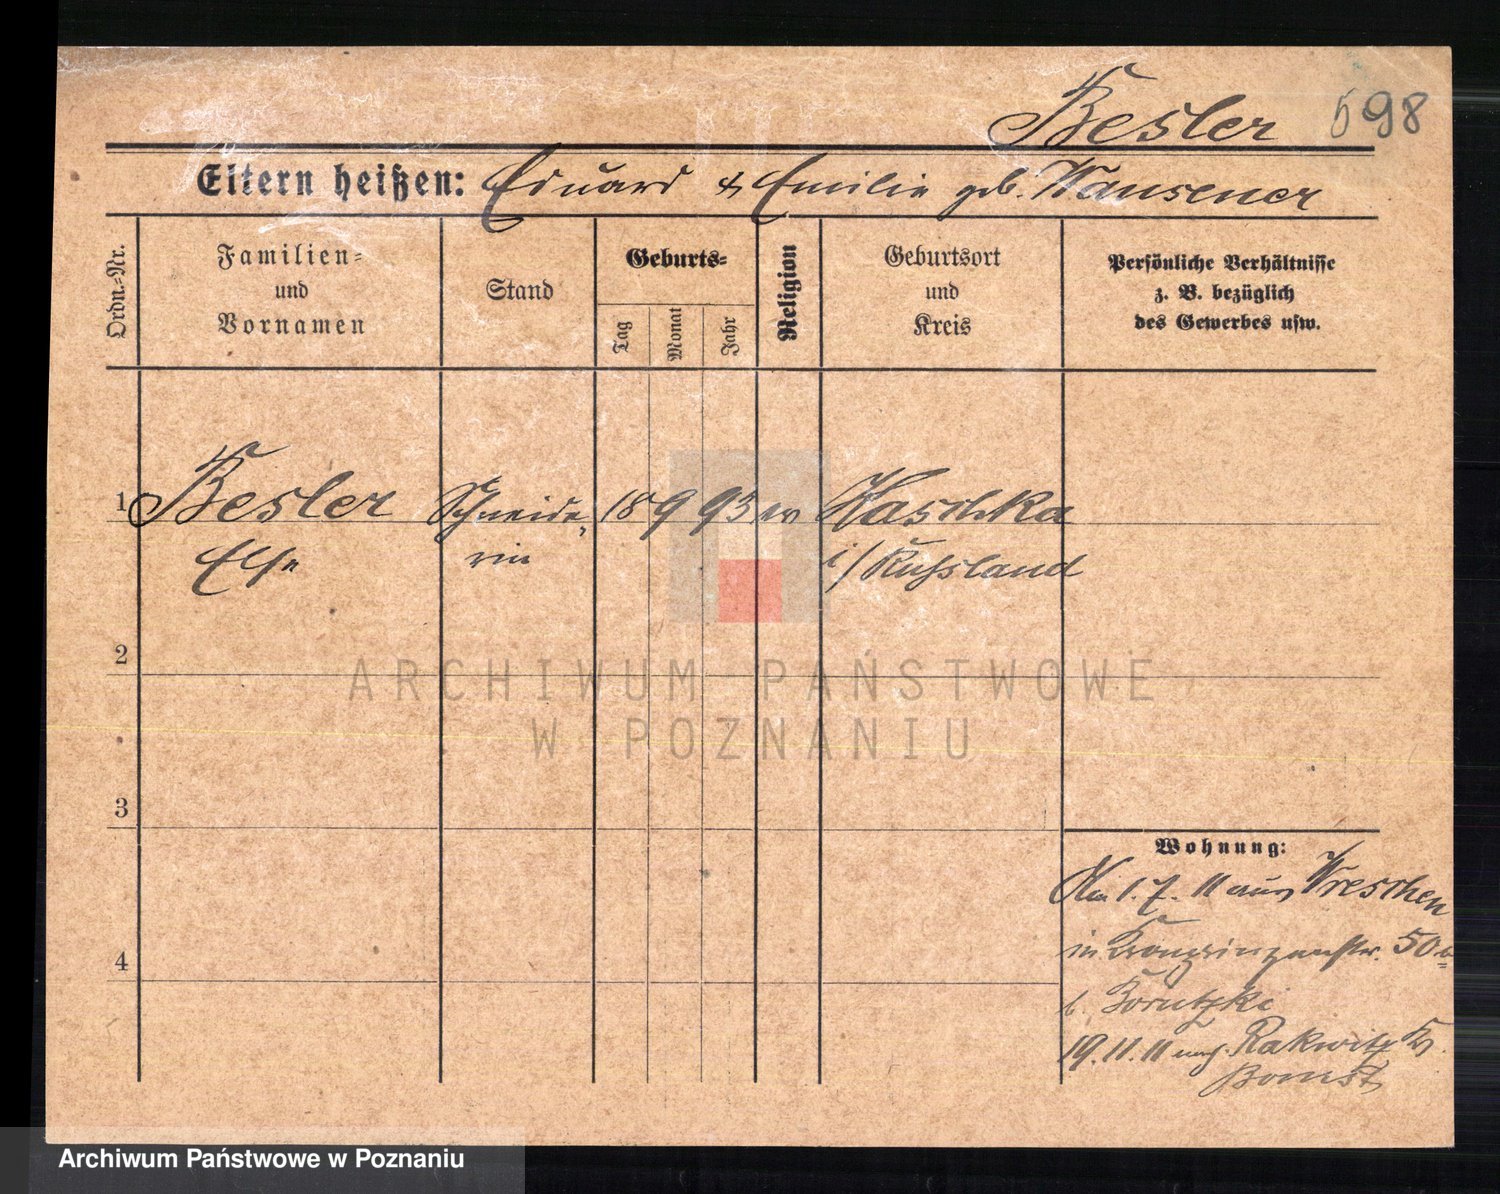 Besler 698
Eltern heißen: Eduard & Emilie geb. Wansener
Ordn.-Nr.
Familien-
und
Vornamen
Stand
Geburts-
Tag
Monat
Jahr
Religion
Geburtsort
und
Kreis
Persönliche Verhältnisse
z. B. bezüglich
des Gewerbes usw.
1 Besler Schneide- 18 9 93 ev Haschka
Else rin i/Russland
2
3
4
Wohnung:
1. 7. 11 aus Wreschen
in Kronprinzenstr. 50
b.
19.11.11 nach Rakwitz Kr.
Bomst
ARCHIWUM PAŃSTWOWE
W POZNANIU
Archiwum Państwowe w Poznaniu